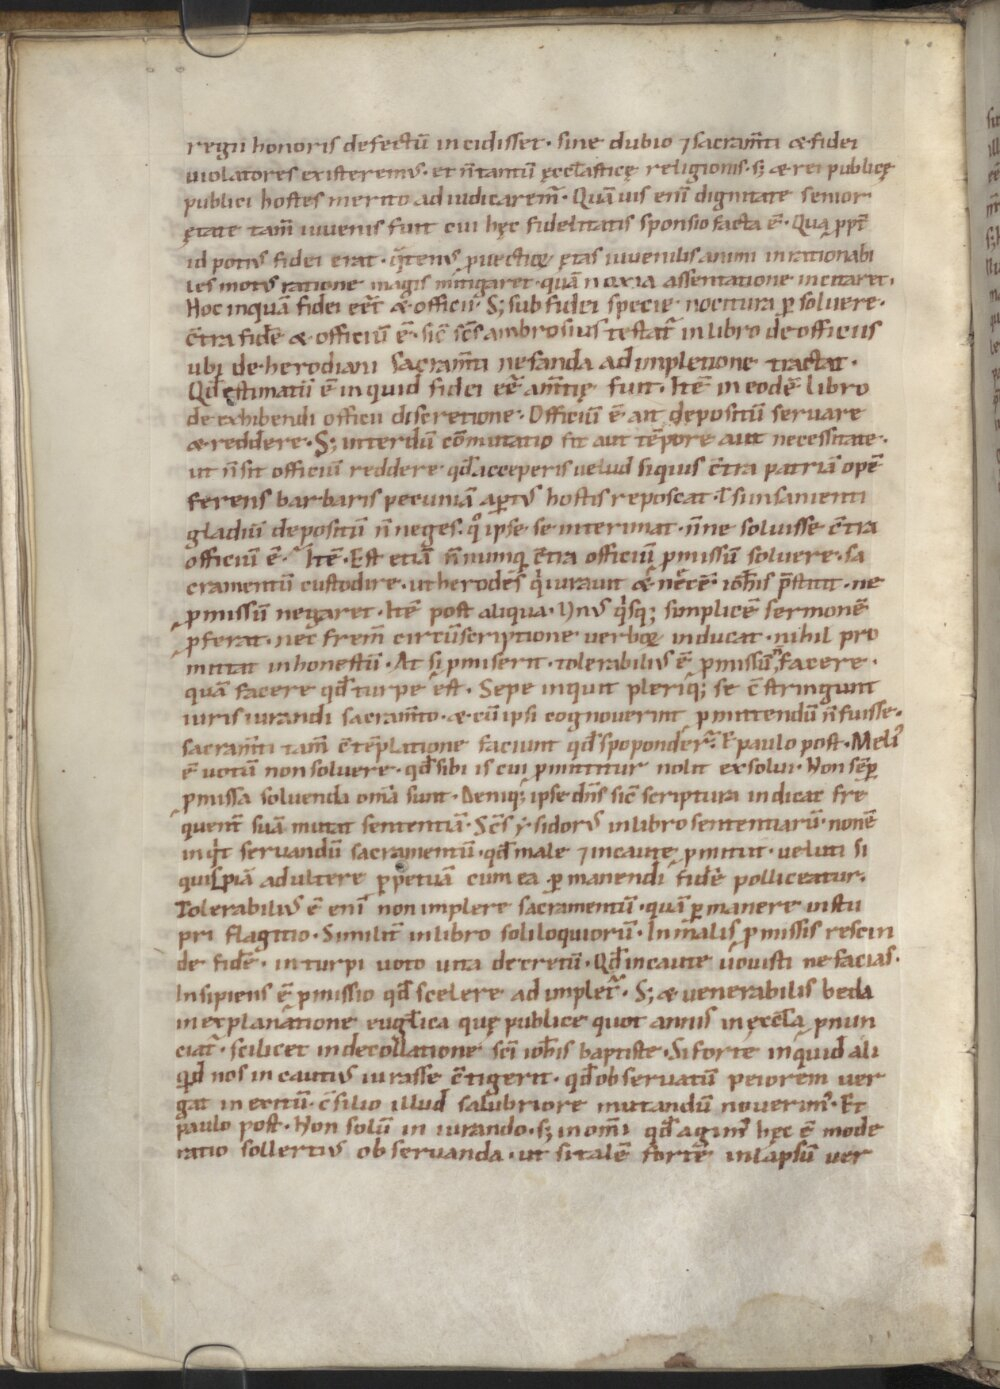 regii honoris defectū incidisset · sine dubio ⁊ sacram̄ti & fidei
uiolatores existeremꝰ · et n̄ tantū ęcclasticę religionis · s; & rei publicę
publici hostes merito adiudicarem̄ · Quā uis eni dignitate senior
ętate tam̄ iuuenis fuit cui hęc fidelitatis sponsio facta ē · Qua ꝓpt̄
id potiꝰ fidei erat · q̄tenꝰ ꝓuectioꝝ ętas iuuenilis animi inrationabi
les motꝰ ratione magis mitigaret · quā noxia assentatione incitaret ·
Hoc inquā fidei eēt & officii · S; sub fidei specie nocitura ꝑsoluere ·
c̄tra fidē & officiū ē · sic̄ sc̄s ambrosius testat̄ in libro de officiis
ubi de herodiani sacram̄ti nefanda adimpletione tractat ·
Qđ ęstimatū ē inquid fidei eē̄ am̄tię fuit · Itē in eodē libro
de exhibendi officii discretione · Officiū ē ait depositū seruare
& reddere · S; interdū cōmutatio fit aut tēpore aut necessitate ·
ut n̄ sit officiū reddere qđ acceperis uelud siquis c̄tra patriā opē
ferens barbaris pecuniā aꝑtꝰ hostis reposcat · ł si insanienti
gladiū depositū n̄ neges · qͦ ipse se interimat · n̄ne soluisse c̄tra
officiū ē · Itē · Est etiā n̄numq̄ c̄tra officiū ꝓmissū soluere · sa
cramentū custodire · ut herodes qͥ iurauit & nęcē ioh̄is p̄stitit · ne
ꝓmissū negaret · Itē post aliqua · Vnꝰ qͥsq; simplicē sermonē
ꝓferat · nec fr̄em circūscriptione uerboꝝ inducat · nihil pro
mittat inhonestū · At si ꝓmiserit · tolerabiliꝰ ē ꝓmissū n̄ facere ·
quā facere qđ turpe est · Sepe inquit pleriq; se c̄stringunt
iuris iurandi sacram̄to · & cū ipsi cognouerint ꝓmittendū n̄ fuisse ·
sacram̄ti tam̄ c̄tēplatione faciunt qđ spoponder̄ · E paulo post · Meliꝰ
ē uotū non soluere · qđ sibi is cui ꝓmittitur nolit exsolui · Non sēꝑ
ꝓmissa soluenda om̄a sunt · Deniq; ipse dn̄s sic̄ scriptura indicat fre
quent̄ suā mutat sententiā · Sc̄s ysidorꝰ in libro sententiarū · non ē
inqͥt seruandū sacramentū · qđ male ⁊ incaute ꝓmittit · ueluti si
quispiā adultere ꝑpetuā cum ea ꝑmanendi fidē polliceatur ·
Tolerabiliꝰ ē eni non implere sacramentū · quā ꝑmanere in stu
pri flagitio · Similit̄ in libro soliloquiorū · In malis ꝓmissis rescin
de fidē · in turpi uoto muta decretū · Qđ incaute uouisti ne facias ·
Insipiens ē ꝓmissio qđ scelere adimplet̄ · S; & uenerabilis beda
in explanatione eugłica quę publice quot annis in ęccła ꝓnun
ciat̄ · scilicet in decollatione sci ioh̄is baptiste · Si forte inquid ali
qͥd nos incautiꝰ iurasse c̄tigerit · qđ obseruatū peiorem uer
gat in exitū · c̄silio illud salubriore mutandū nouerim̄ · Et
paulo post · Non solū in iurando · s; in om̄i qđ agim̄ hęc ē mode
ratio sollertiꝰ obseruanda · ut si talē forte in lapsū uer